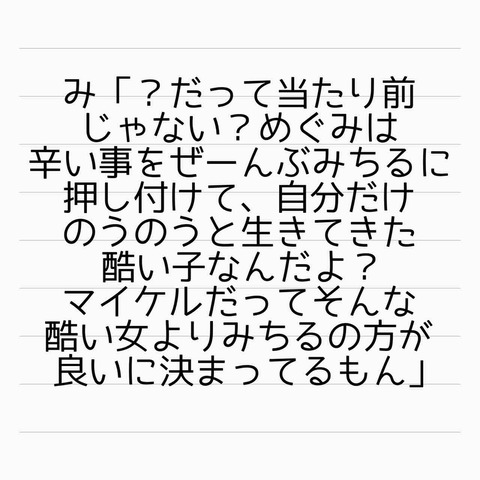 み「？だって当たり前
じゃない？めぐみは
辛い事をぜーんぶみちるに
押し付けて、自分だけ
のうのうと生きてきた
酷い子なんだよ？
マイケルだってそんな
酷い女よりみちるの方が
良いに決まってるもん」